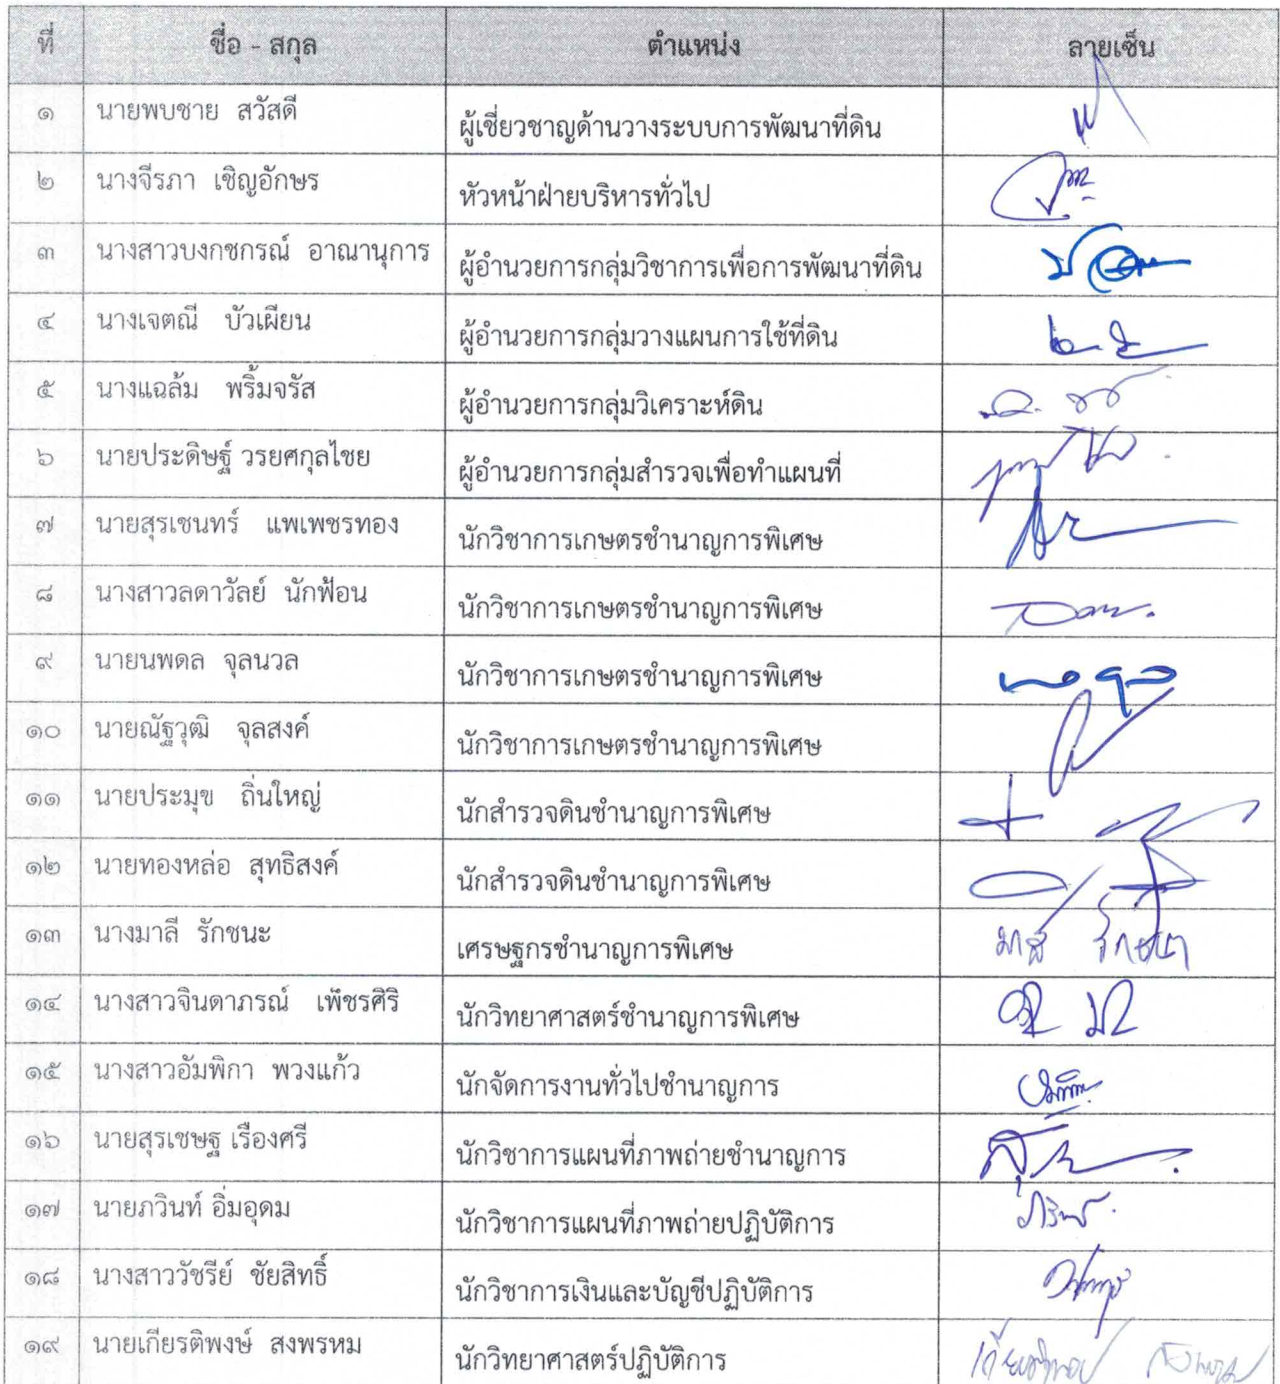 ที่ ชื่อ - สกุล ตำแหน่ง ลายเซ็น
๑ นายพบชาย สวัสดี ผู้เชี่ยวชาญด้านวางระบบการพัฒนาที่ดิน
๒ นางจีรภา เชิญอักษร หัวหน้าฝ่ายบริหารทั่วไป
๓ นางสาวบงกชกรณ์ อาณานุการ ผู้อำนวยการกลุ่มวิชาการเพื่อการพัฒนาที่ดิน
๔ นางเจตณี บัวเผียน ผู้อำนวยการกลุ่มวางแผนการใช้ที่ดิน
๕ นางแฉล้ม พริ้มจรัส ผู้อำนวยการกลุ่มวิเคราะห์ดิน
๖ นายประดิษฐ์ วรยศกุลไชย ผู้อำนวยการกลุ่มสำรวจเพื่อทำแผนที่
๗ นายสุรเชนทร์ แพเพชรทอง นักวิชาการเกษตรชำนาญการพิเศษ
๘ นางสาวลดาวัลย์ นักฟ้อน นักวิชาการเกษตรชำนาญการพิเศษ
๙ นายนพดล จุลนวล นักวิชาการเกษตรชำนาญการพิเศษ
๑๐ นายณัฐวุฒิ จุลสงค์ นักวิชาการเกษตรชำนาญการพิเศษ
๑๑ นายประมุข ถิ่นใหญ่ นักสำรวจดินชำนาญการพิเศษ
๑๒ นายทองหล่อ สุทธิสงค์ นักสำรวจดินชำนาญการพิเศษ
๑๓ นางมาลี รักชนะ เศรษฐกรชำนาญการพิเศษ มาลี รักชนะ
๑๔ นางสาวจินดาภรณ์ เพ็ชรศิริ นักวิทยาศาสตร์ชำนาญการพิเศษ
๑๕ นางสาวอัมพิกา พวงแก้ว นักจัดการงานทั่วไปชำนาญการ
๑๖ นายสุรเชษฐ เรืองศรี นักวิชาการแผนที่ภาพถ่ายชำนาญการ
๑๗ นายภวินท์ อิ่มอุดม นักวิชาการแผนที่ภาพถ่ายปฏิบัติการ
๑๘ นางสาววัชรีย์ ชัยสิทธิ์ นักวิชาการเงินและบัญชีปฏิบัติการ
๑๙ นายเกียรติพงษ์ สงพรหม นักวิทยาศาสตร์ปฏิบัติการ